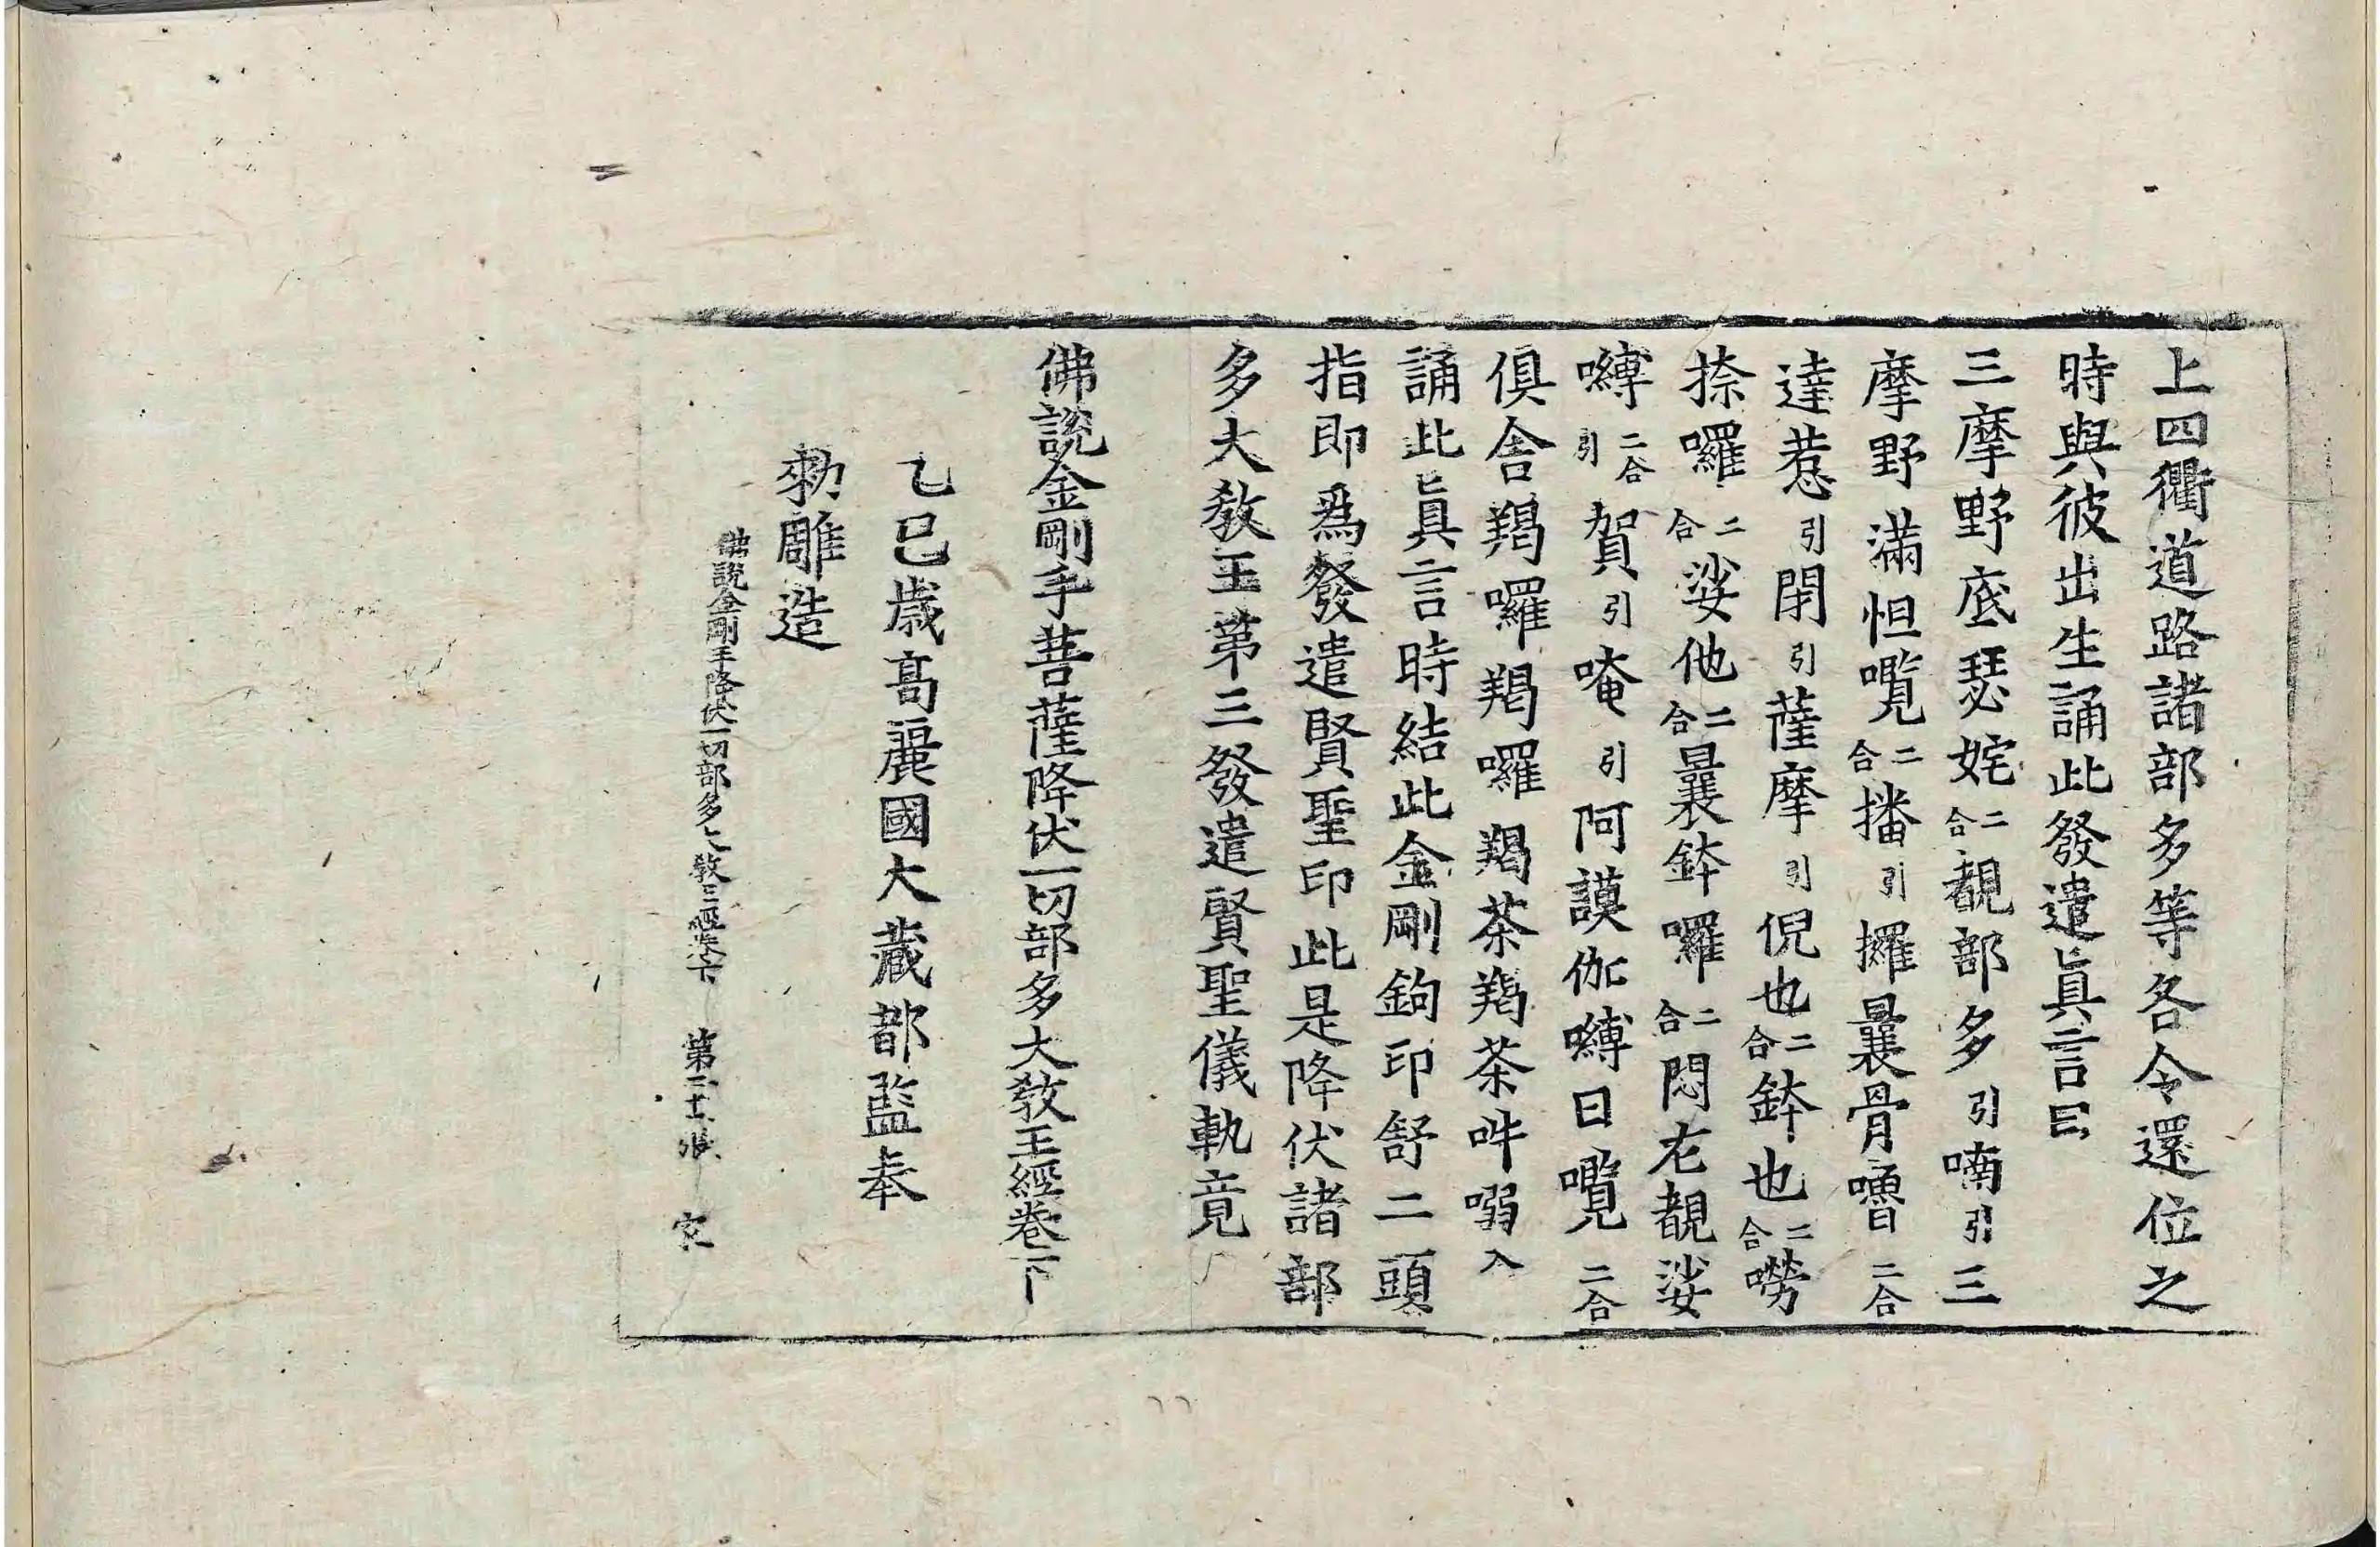 上四衢道路諸部多等各令還位之
時與彼出生誦此發遣眞言曰
三摩野底瑟姹二合覩部多引喃引三
摩野滿怛囕二合播引攞曩骨嚕二合
達惹引閉引薩摩引倪也二合鉢也二合嘮
捺囉二合娑他二合曩鉢囉二合悶左覩娑
嚩二合引賀引唵引阿謨伽嚩日囕二合
俱舍羯囉羯囉羯茶羯茶吽嗗入
誦此眞言時結此金剛鉤印舒二頭
指即爲發遣賢聖印此是降伏諸部
多大教王第三發遣賢聖儀軌竟
佛說金剛手菩薩降伏一切部多大教王經卷下
乙巳歳高麗國大藏都監奉
勑雕造
佛說金剛手降伏一切部多大教王經卷下 第二十張